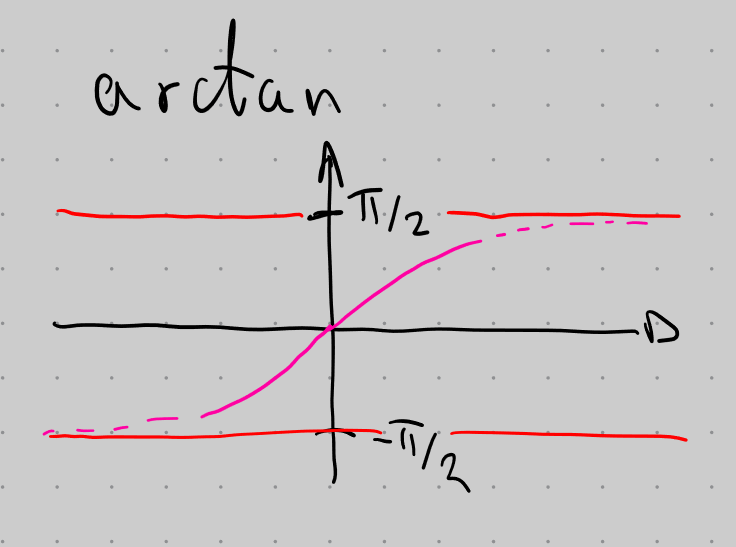 arctan
π/2
-π/2